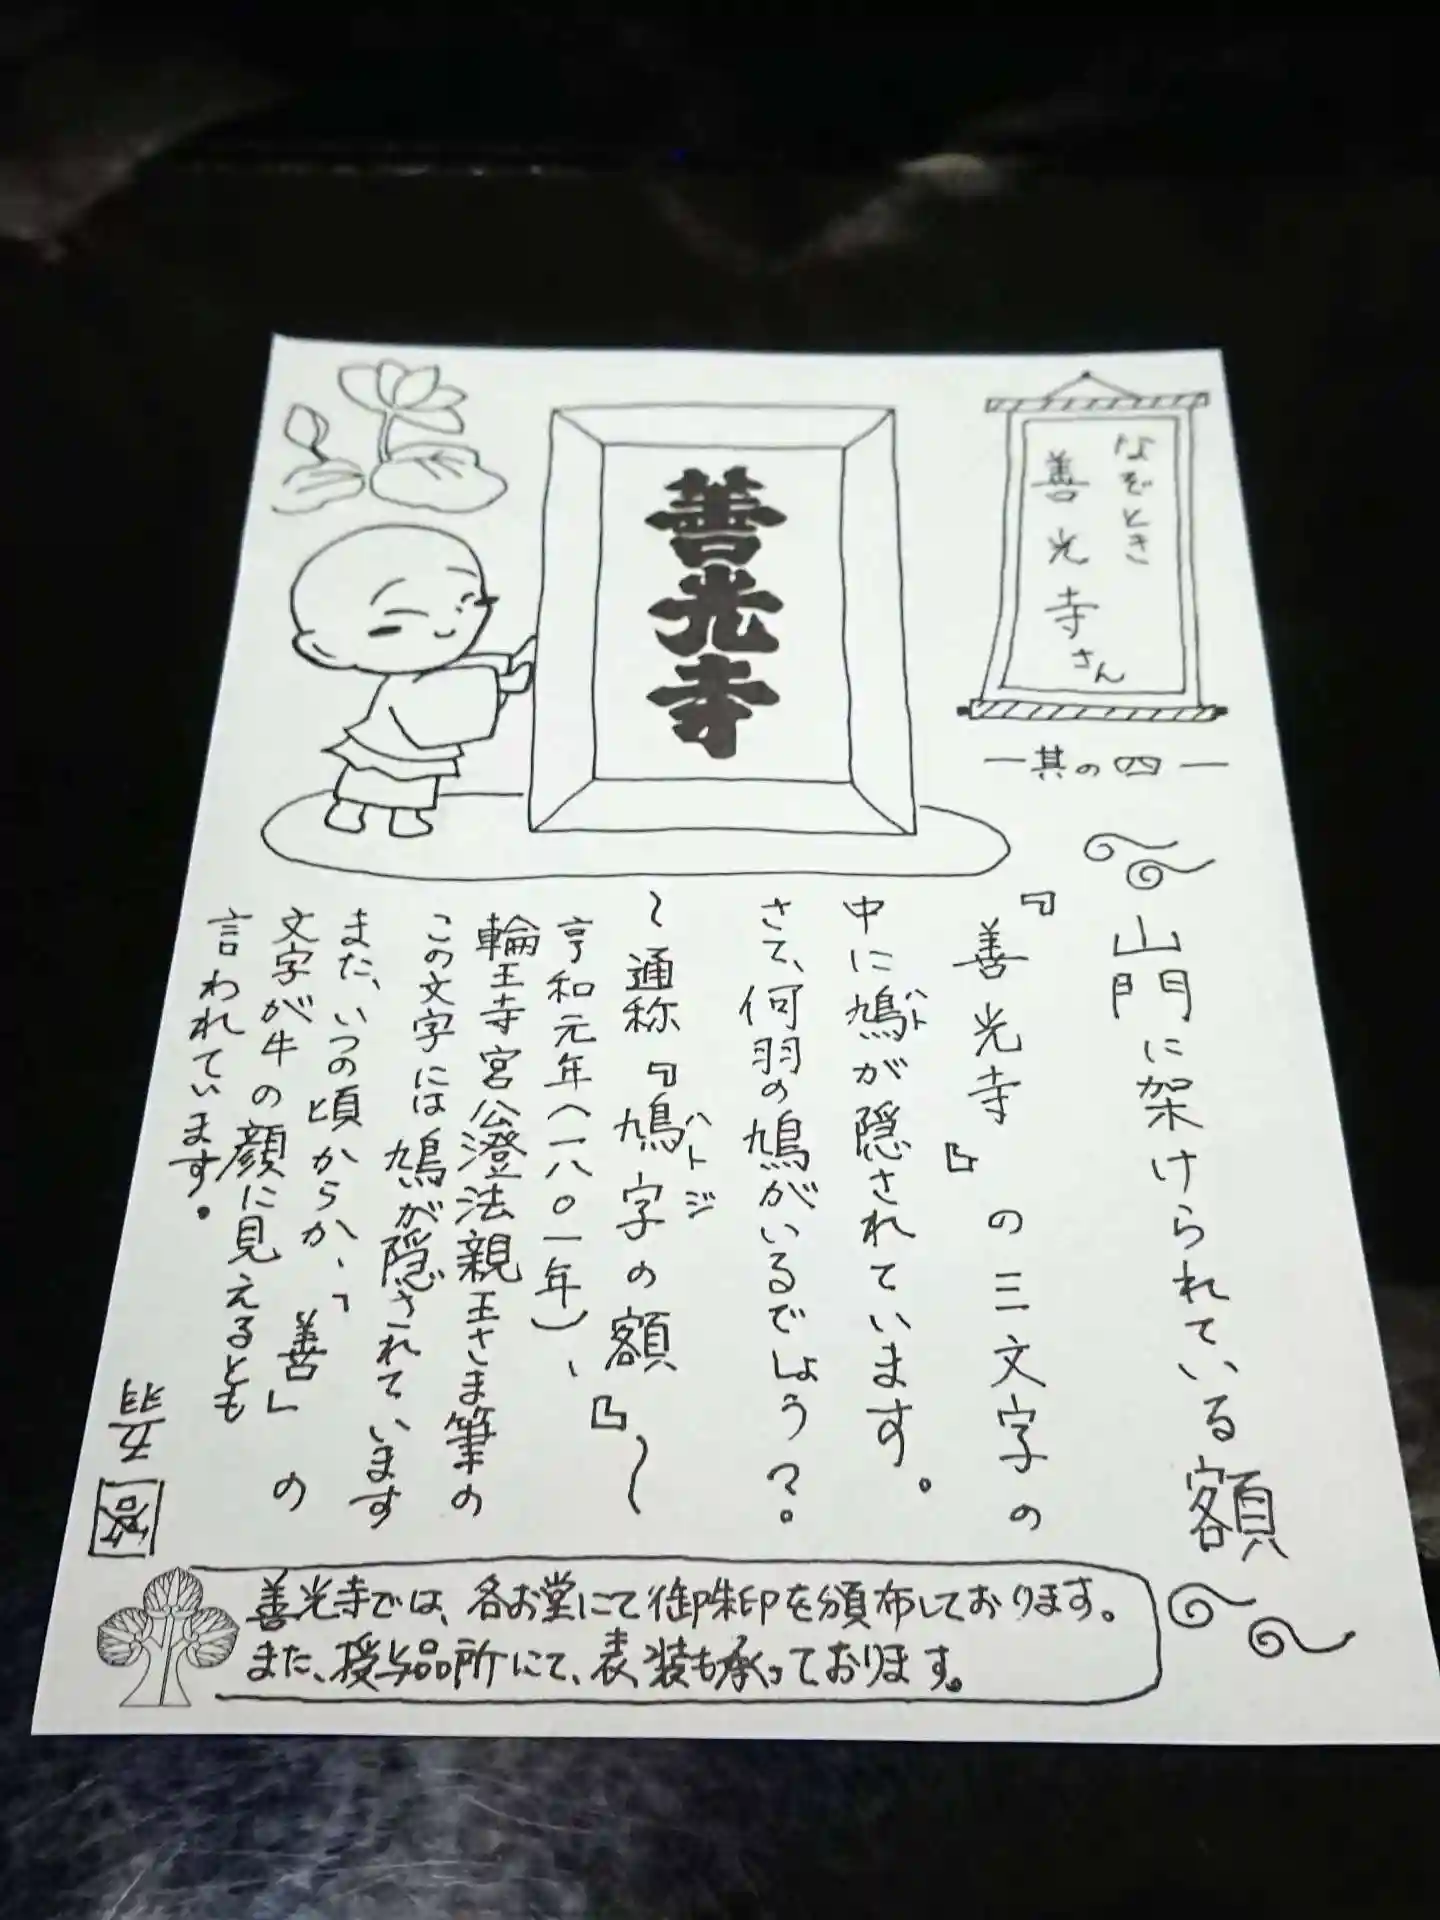 なぞとき
善光寺さん
―其の四―
山門に架けられている額
『善光寺』の三文字の
中に鳩が隠されています。
ハト
さて、何羽の鳩がいるでしょう?。
~通称『鳩字の額』~
ハトジ
享和元年(一八〇一年)、
輪王寺宮公澄法親王さま筆の
この文字には鳩が隠されています
また、いつの頃からか、「善」の
文字が牛の顔に見えるとも
言われています。
善光寺
善光寺では、各お堂にて御朱印を頒布しております。
また、授与品所にて、表装も承っております。